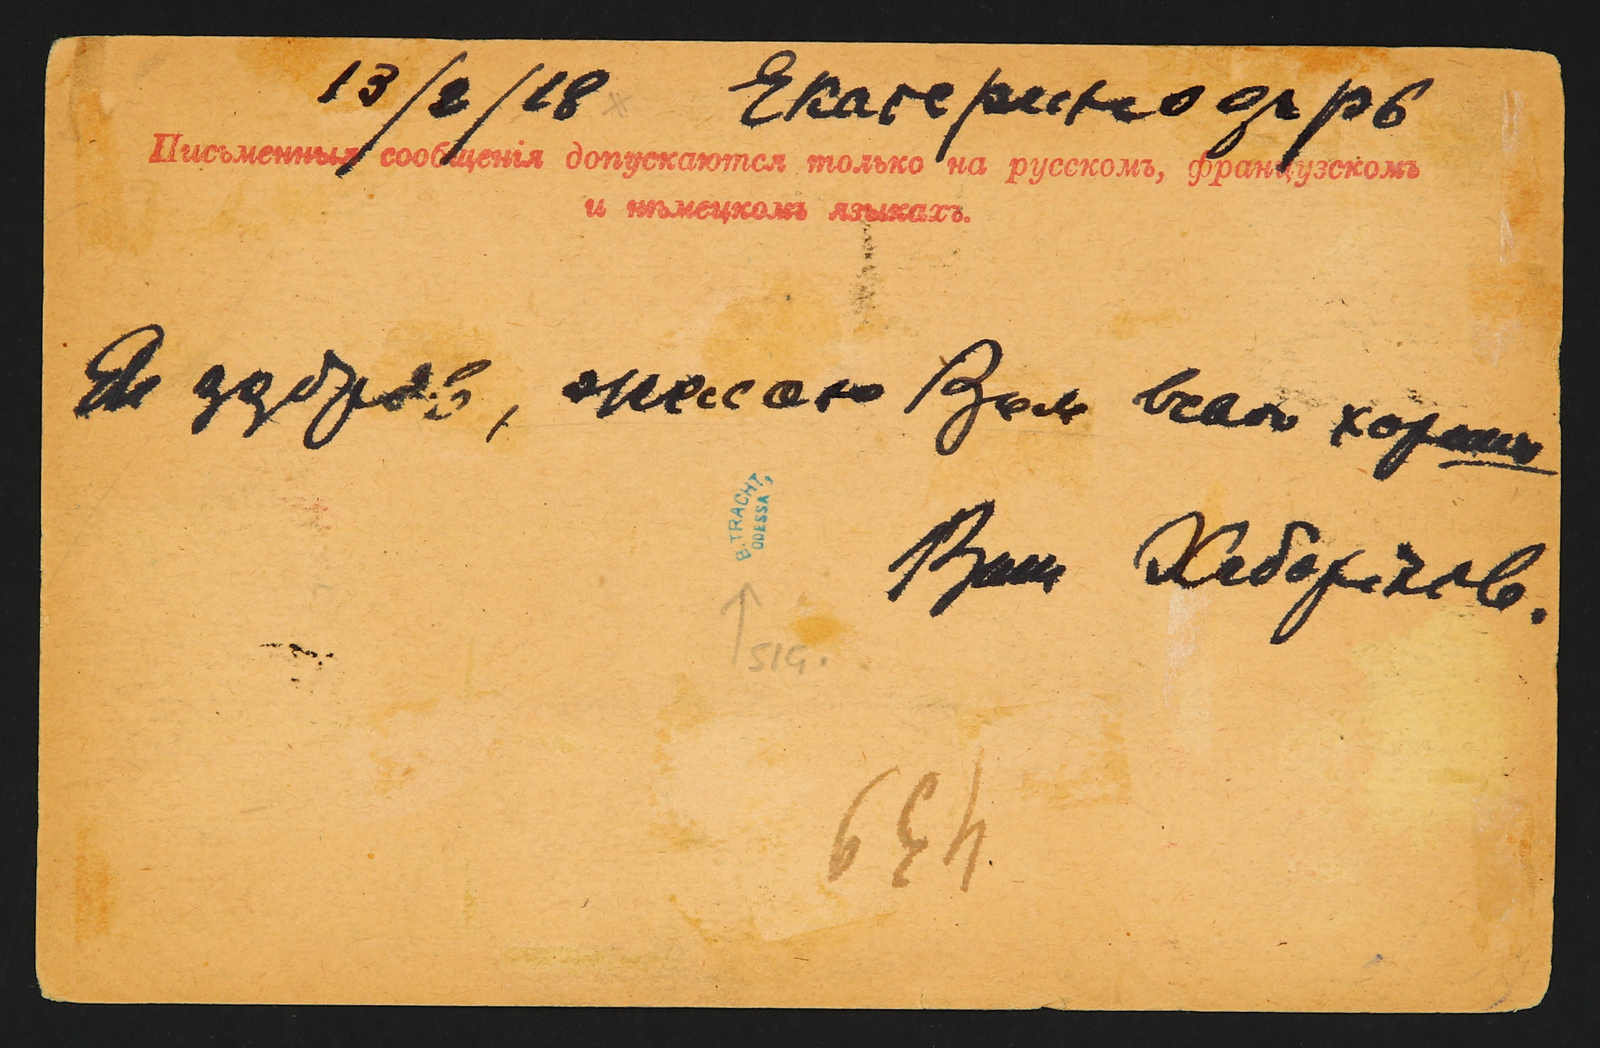 13/2/18 Екатеринодаръ
Письменныя сообщенія допускаются только на русскомъ, французскомъ
и нѣмецкомъ языкахъ.
Я здоров, желаю Вам всего хорошего
B. TRACHT,
ODESSA
Ваш
SIG.
439